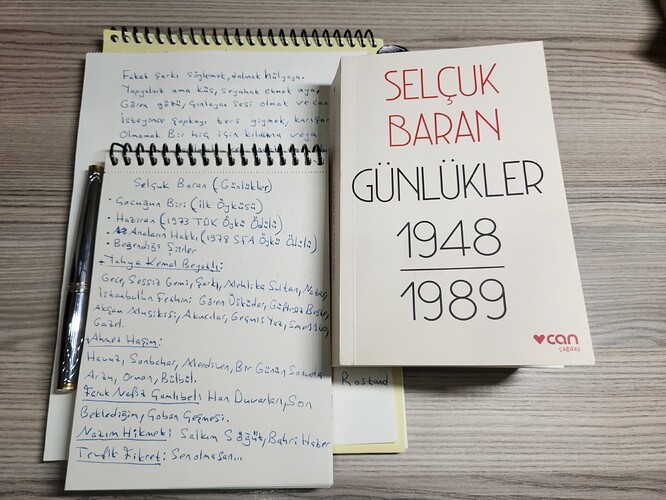 Fakat şarkı söylemek, dalmak hülyaya.
Yapyalnız ama hür, seyahat etmek aya,
Gören gözü, çınlayan sesi olmak ve can
İsteyince şapkayı ters giymek, karışan
Olmamak. Bir hiç için kılıcına veya
Selçuk Baran (Günlükler)
• Çocuğun Biri (ilk Öyküsü)
• Haziran (1973 TDK Öykü Ödülü)
• Anaların Hakkı (1978 SFA Öykü Ödülü)
• Beğendiği Şiirler
- Yahya Kemal Beyatlı:
Gece, Sessiz Gemi, Şarkı, Mehlika Sultan, Nazar,
İstanbul'un Fethini Gören Üsküdar, Güftesiz Beste,
Akşam Musikisi, Akıncılar, Geçmiş Yaz,
Gazel.
- Ahmet Haşim:
Havuz, Sonbahar, Merdiven, Bir Günün Sonunda
Arzu, Orman, Bülbül.
Faruk Nafiz Çamlıbel: Han Duvarları, Son
Beklediğim, Çoban Çeşmesi.
Nazım Hikmet: Salkım Söğüt, Bahri Hazer
Tevfik Fikret: Sen olmasan...
Rostand
SELÇUK
BARAN
GÜNLÜKLER
1948
1989
can
çağdaş